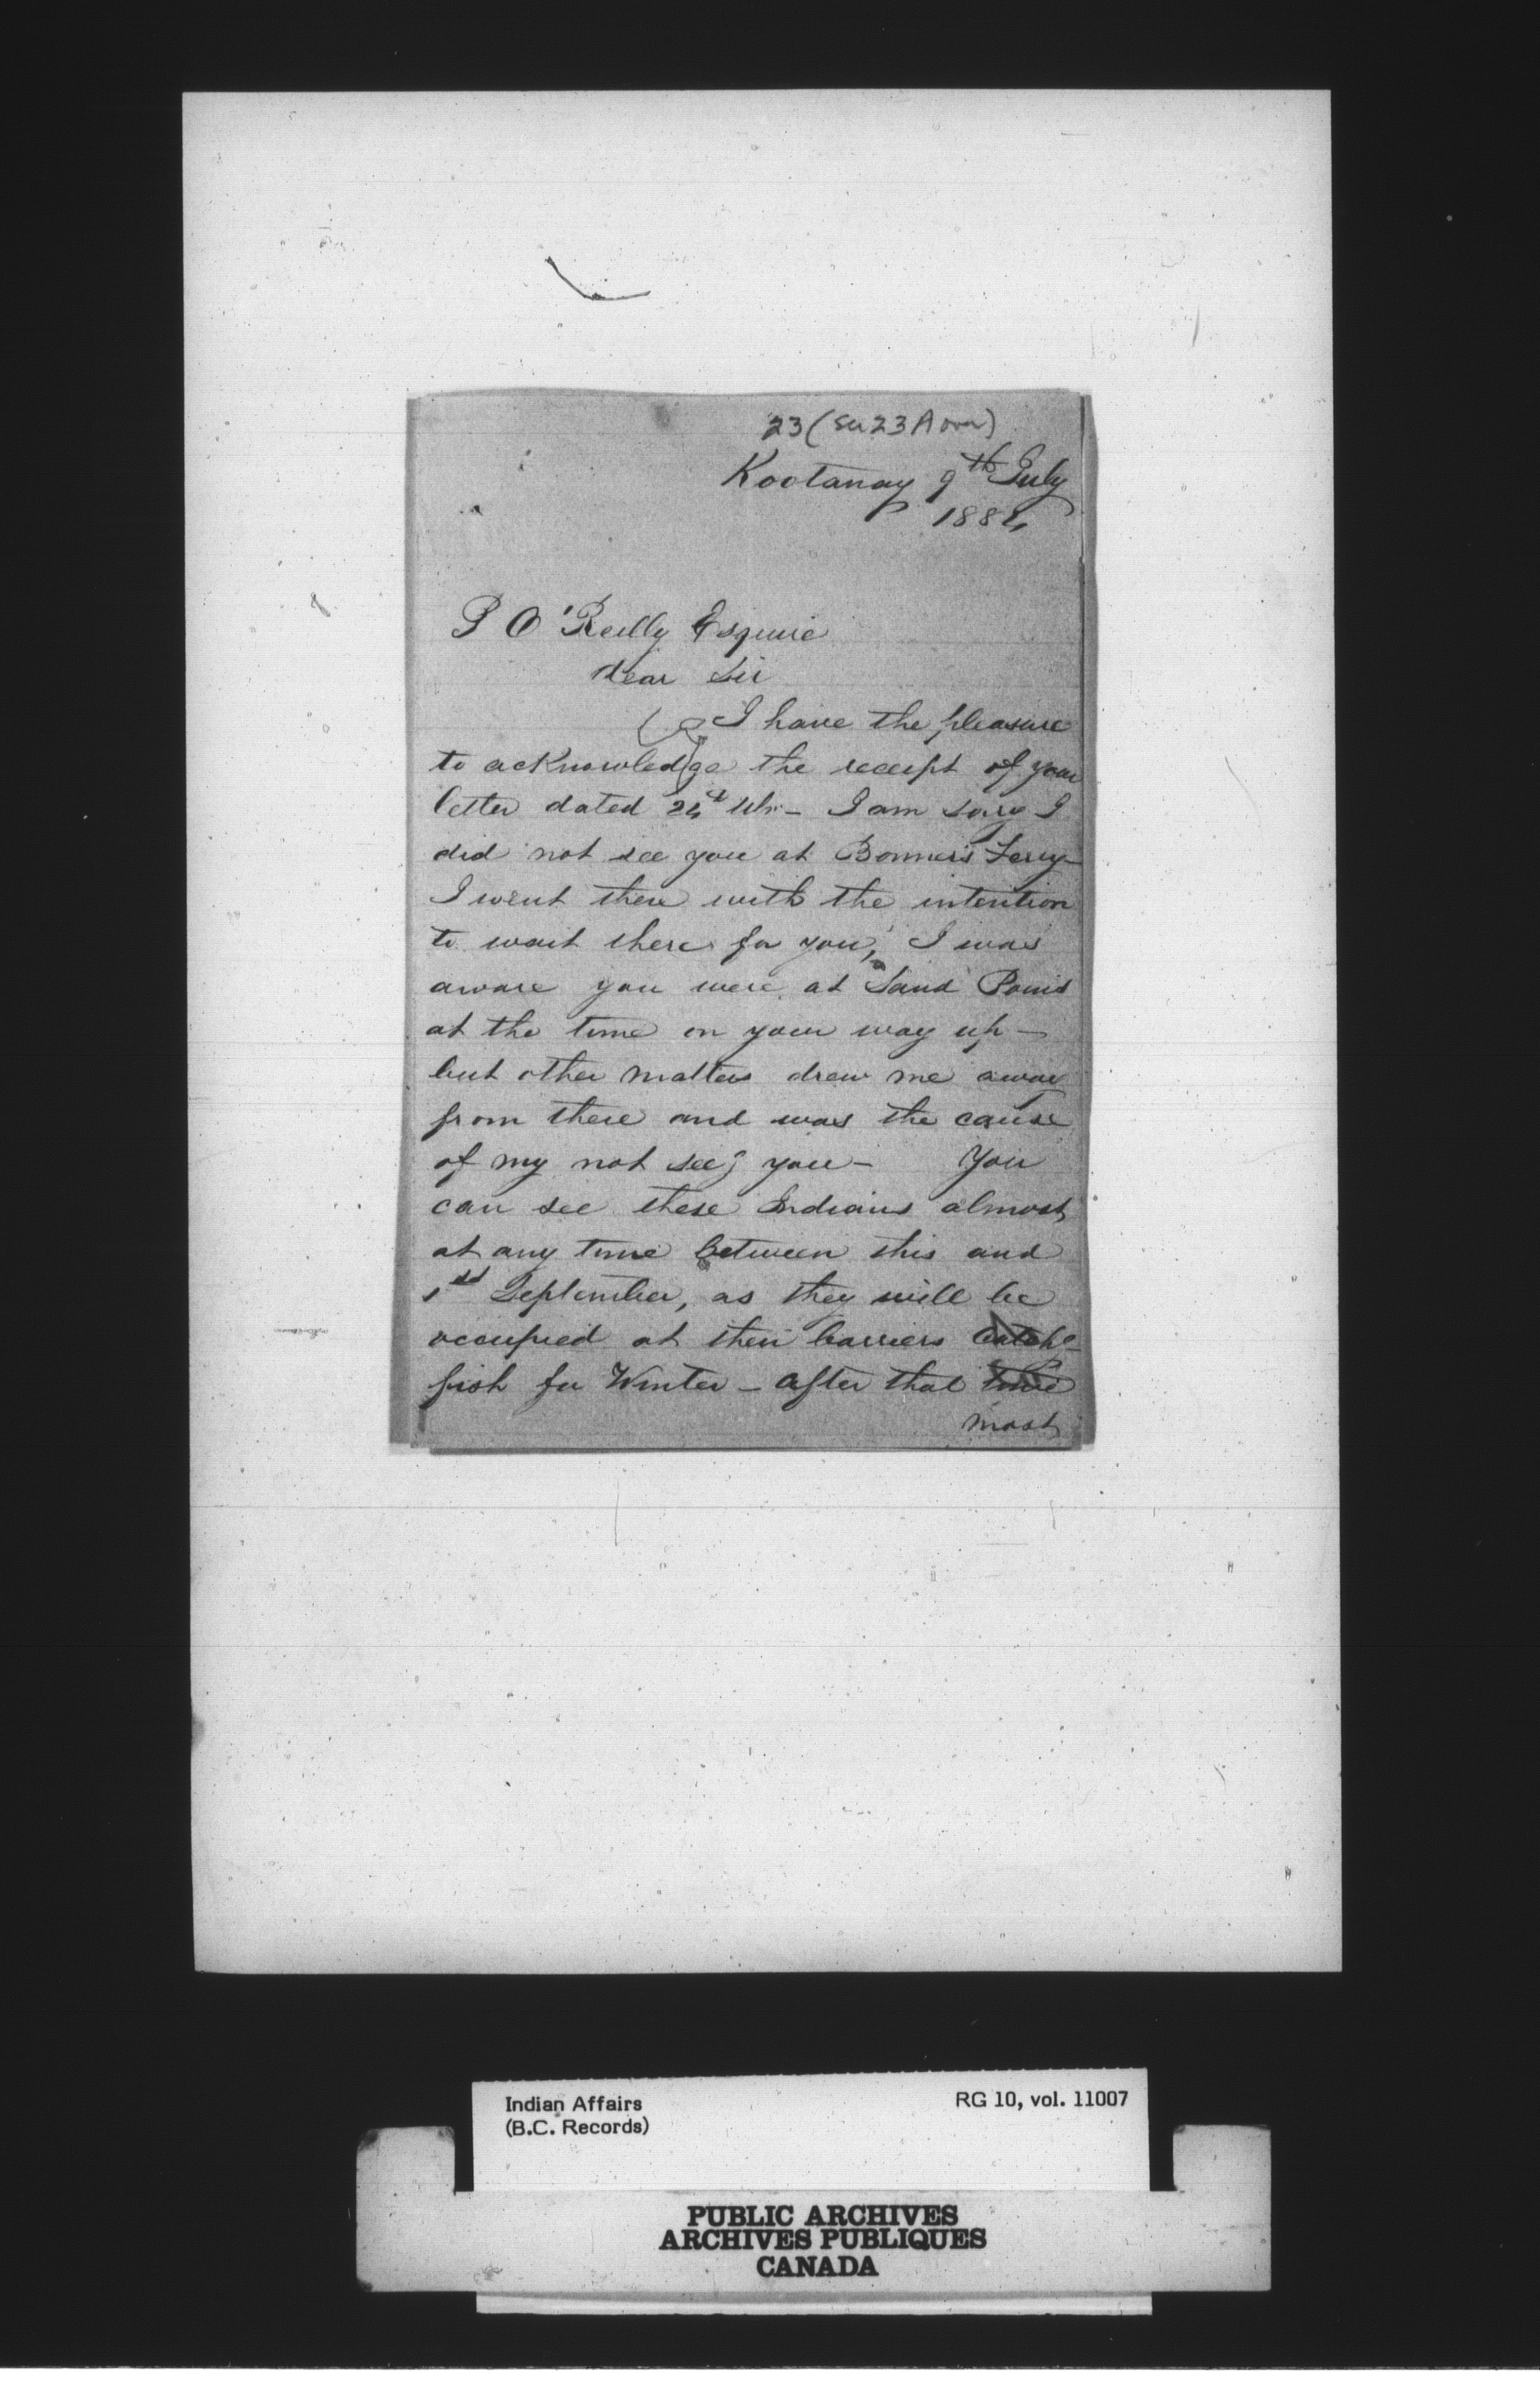 23 (See 23A over)
Kootanay 9th July
1884
P O'Reilly Esquire
Dear Sir
I have the pleasure
to acKnowledge the receipt of your
letter dated 24th Ulto - I am sorry I
did not see you at Bonner's Ferry -
I went there with the intention
to wait there for you, I was
aware you were at Sand Point
at the time on your way up -
but other matters drew me away
from there and was the cause
of my not seeg you - You
can see these Indians almost
at any time between this and
1st September, as they will be
occupied at their barriers catchg
fish for Winter - After that time
most
Indian Affairs
(B.C. Records)
RG 10, vol. 11007
PUBLIC ARCHIVES
ARCHIVES PUBLIQUES
CANADA